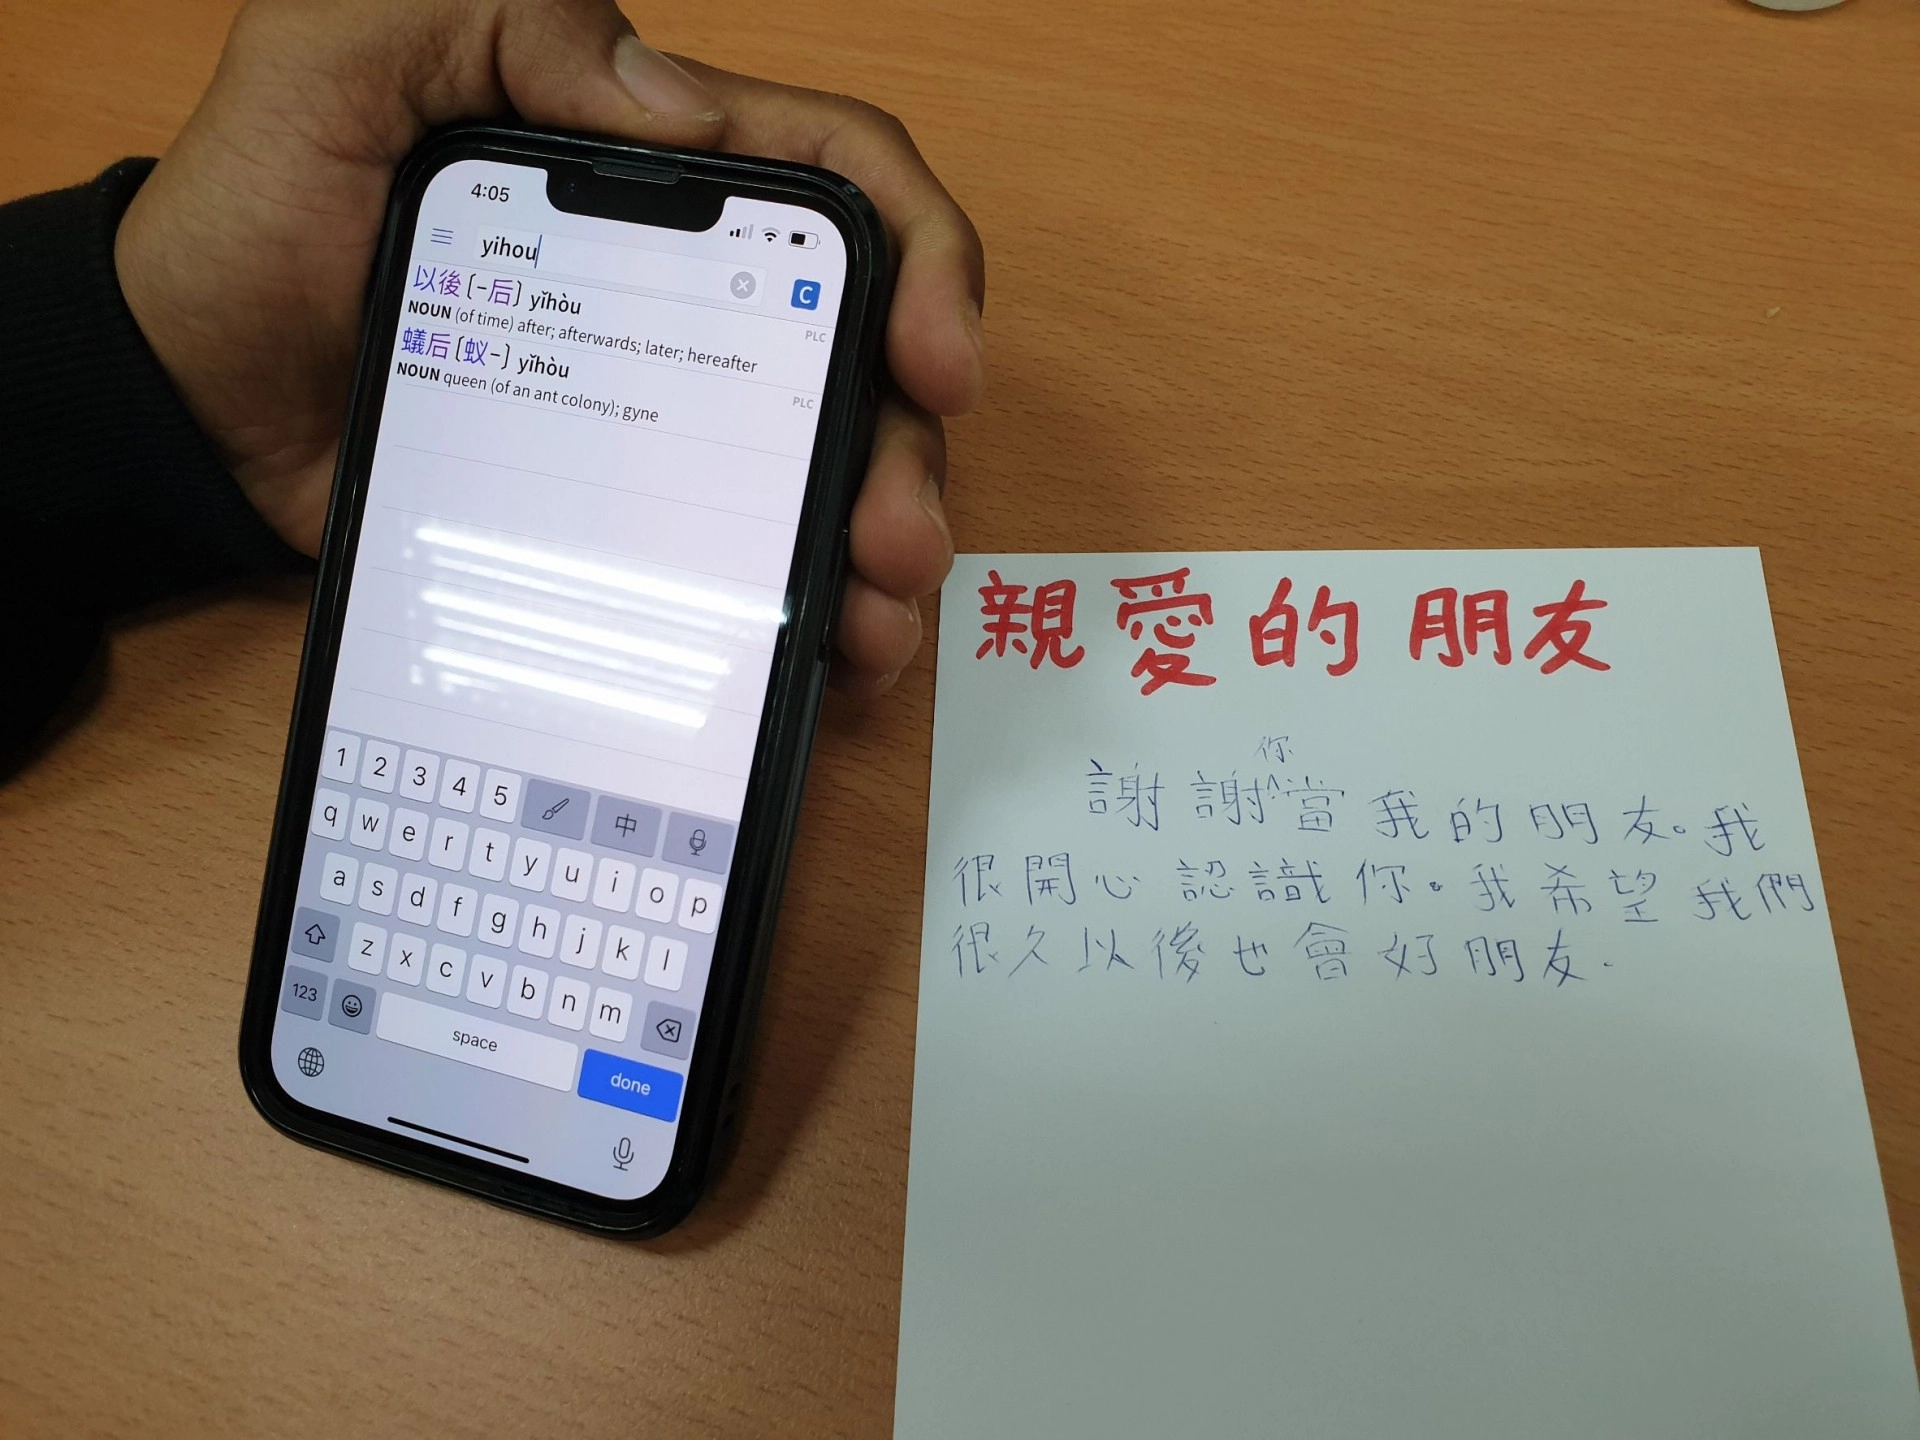 4:05
yihou
C
以後[-后] yǐhòu
PLC
NOUN (of time) after; afterwards; later; hereafter
蟻后[蚁-] yǐhòu
PLC
NOUN queen (of an ant colony); gyne
1 2 3 4 5 中
q w e r t y u i o p
a s d f g h j k l
z x c v b n m
123 space done
親愛的朋友
你
謝謝當我的朋友。我
很開心認識你。我希望我們
很久以後也會好朋友.